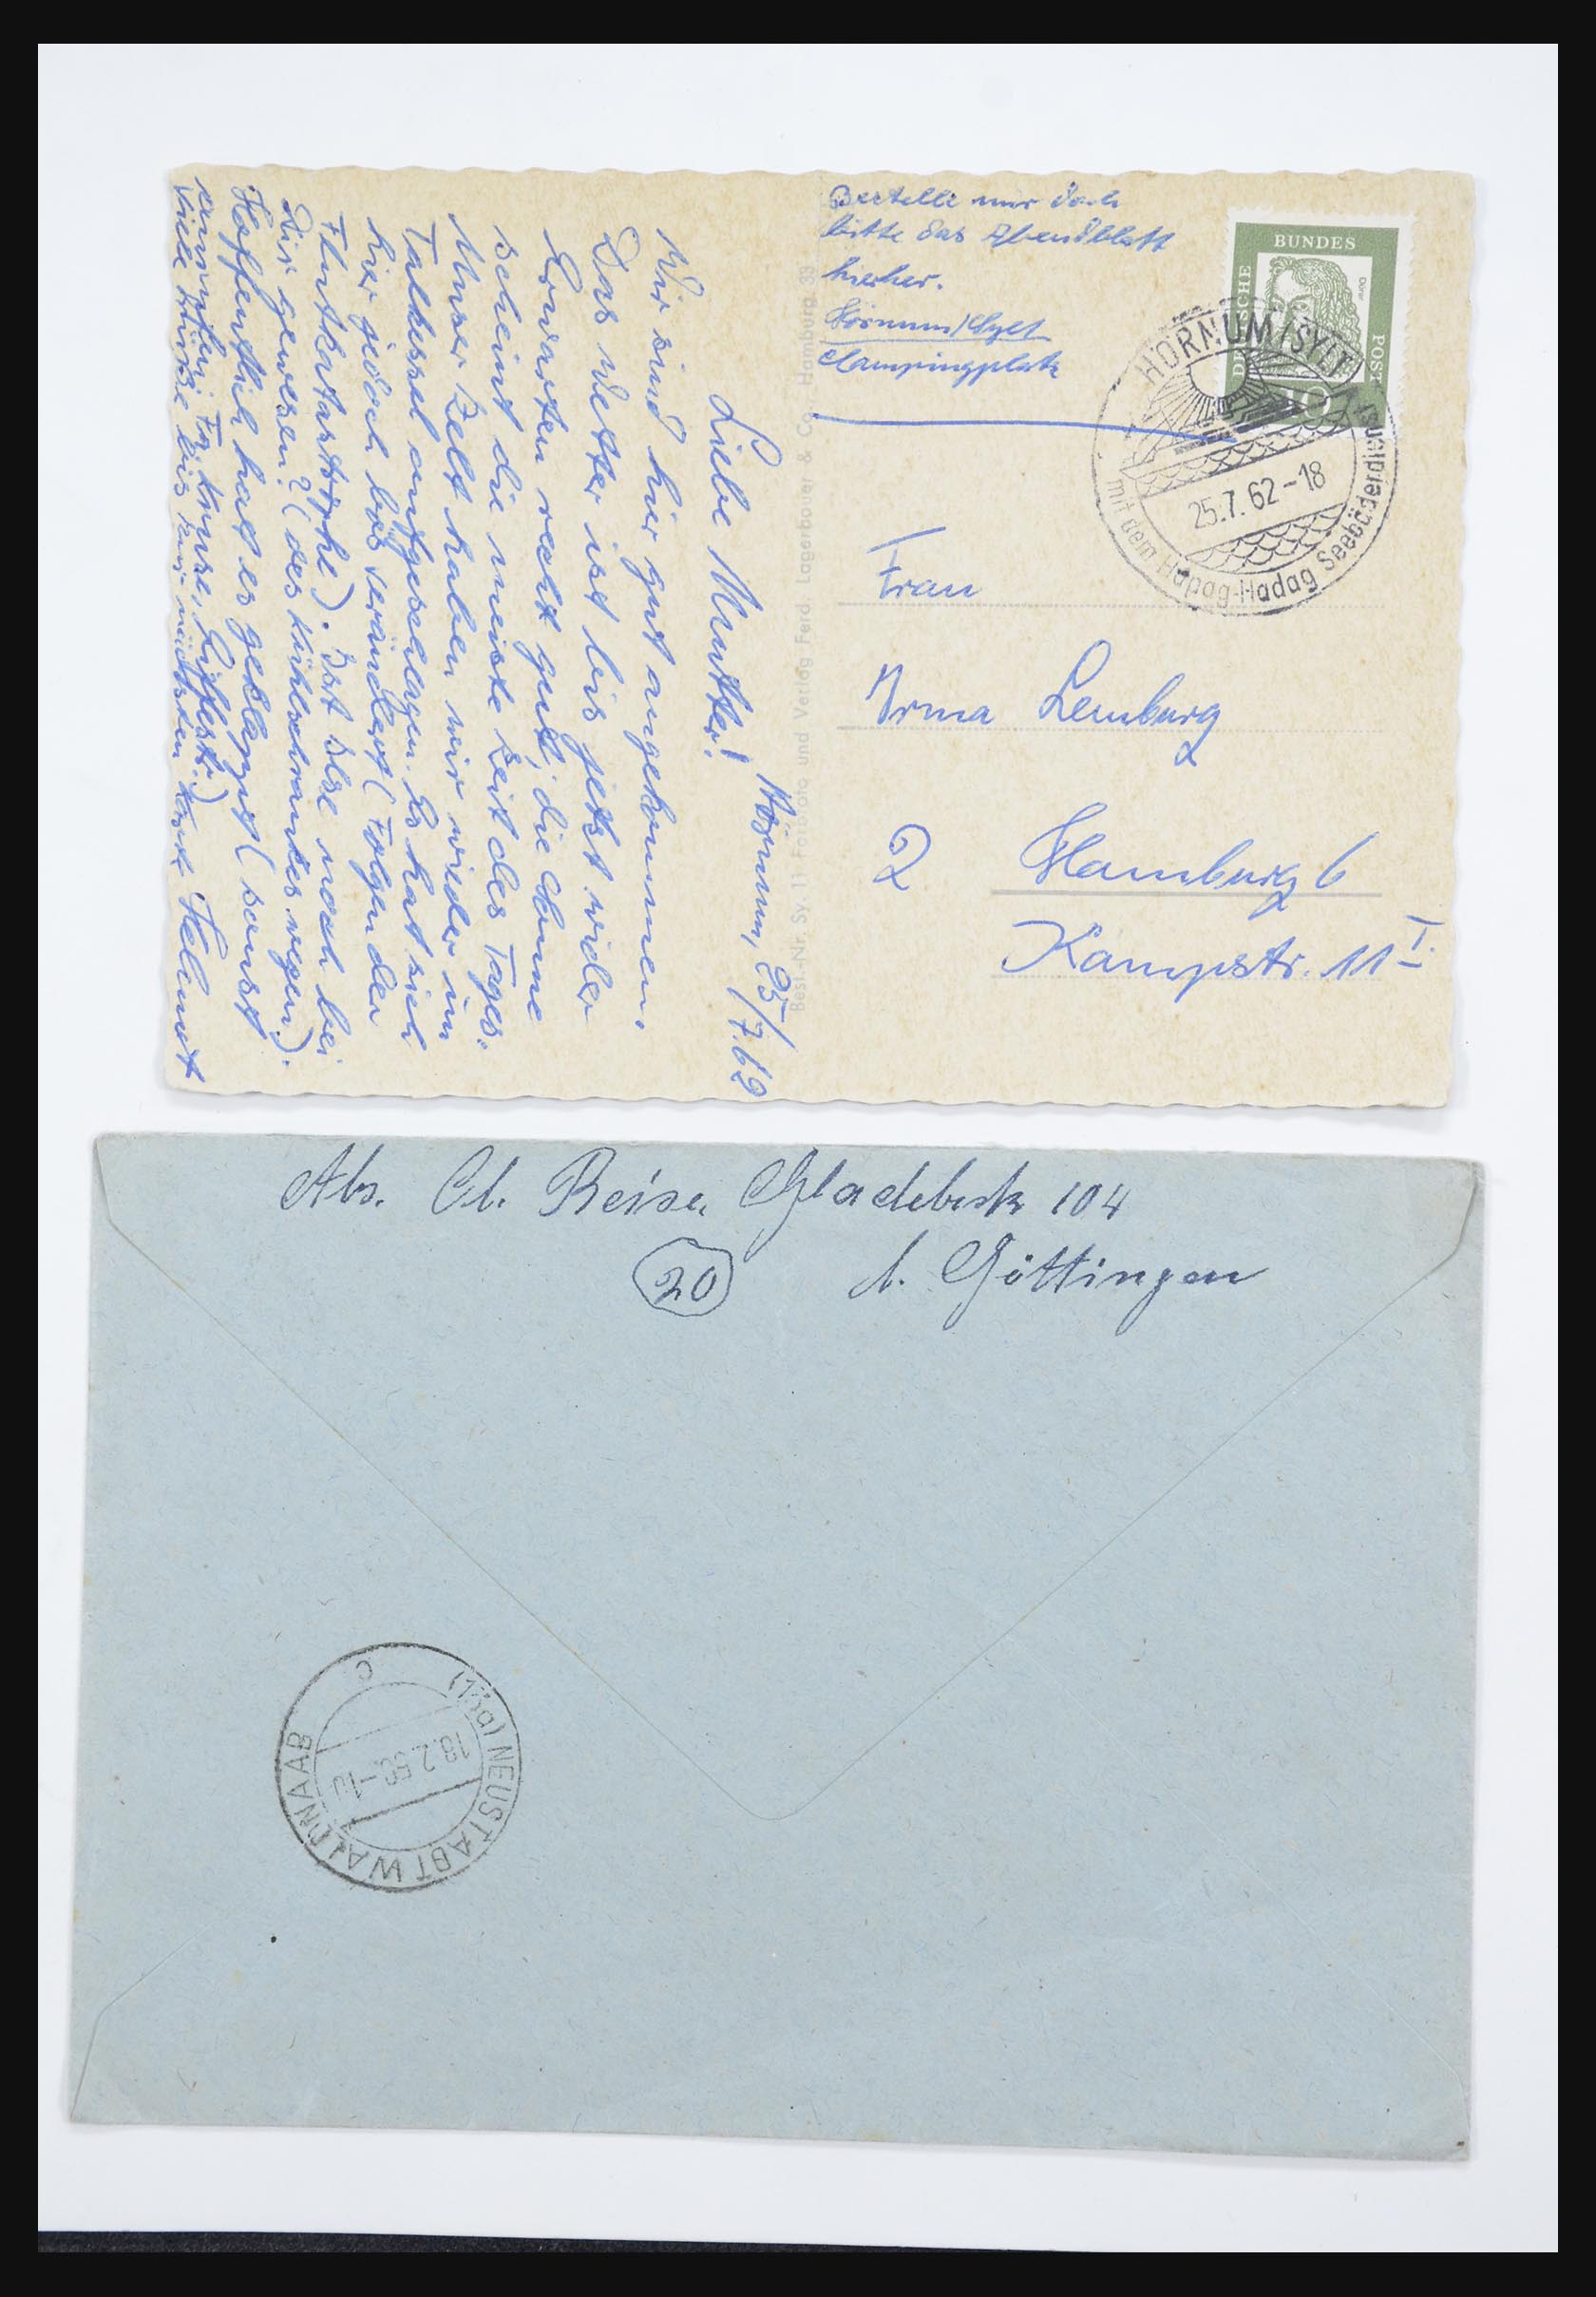 Bestelle mir doch
bitte das Abendblatt
hierher.
Hörnum/Sylt
Campingplatz
DEUTSCHE
BUNDES
POST
Dürer
10
HÖRNUM/SYLT
25.7.62-18
mit dem Hapag-Hadag Seebäderdienst
Frau
Irma Lemburg
2 Hamburg 6
Kampstr. 11 I.
Best.-Nr. Sy. 11 Farbfoto und Verlag Ferd. Lagerbauer & Co., Hamburg 33
Hörnum, 25/7.62
Liebe Mutter!
Wir sind hier gut angekommen.
Das Wetter ist bis jetzt wider
Erwarten recht gut, die Sonne
scheint die meiste Zeit des Tages.
Unser Zelt haben wir wieder im
Talkessel aufgeschlagen. Es hat sich
hier jedoch was verändert (Folgen der
Flutkatastrophe). Ist Ilse noch bei
Dir gewesen? (des Kühlschrankes wegen).
Hoffentlich hat es geklappt (sonst
anrufen: Fa. Kruse,
Viele Grüsse bis zur nächsten Karte Helmut
Abs. Cl. Reise. Gladebeck 104
(20) b. Göttingen
(13a) NEUSTADT WALDNAAB
c
18.2.50-10